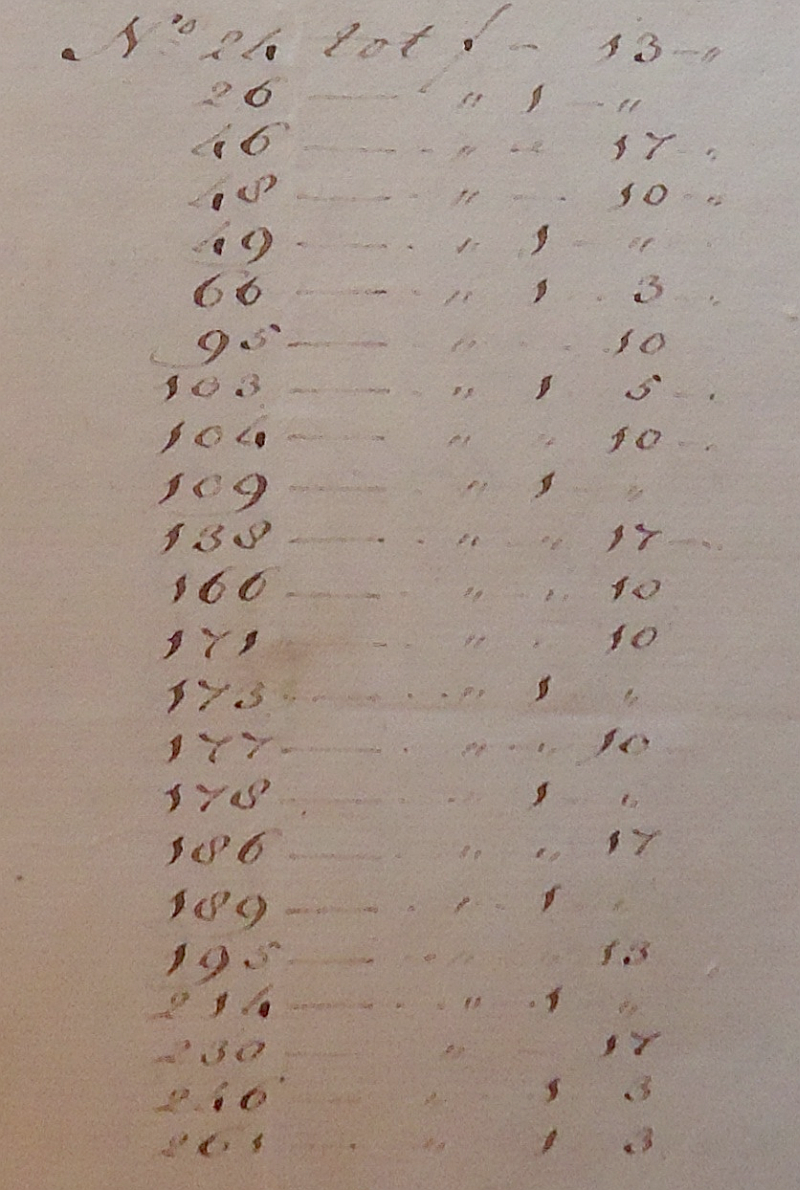 No 24 tot f - 13 - "
26 — " 1 - "
46 — " - 17 - "
48 — " - 10 - "
49 — " 1 - "
66 — " 1 - 3 - "
95 — " - 10
103 — " 1 5 - "
104 — " " 10 - "
109 — " 1 "
138 — " - " 17 - "
166 — " " 10
171 — " " 10
173 — " 1 "
177 — " - " 10
178 — " 1 "
186 — " " 17
189 — " 1
195 — " " 13
214 — " 1 "
230 — " - 17
246 — " 1 3
261 — " 1 3